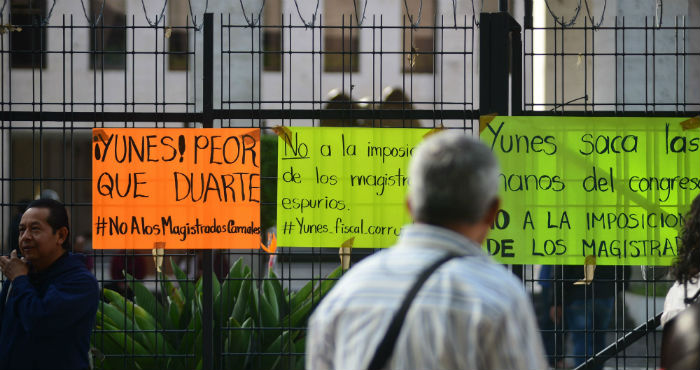 ¡YUNES! PEOR
QUE DUARTE
#NO A los MAGISTRADOS CARNALES
NO a la imposic
de los magistr
espurios.
#Yunes_fiscal_corru
Yunes saca las
manos del congres
NO A LA IMPOSICION
DE LOS MAGISTRAD